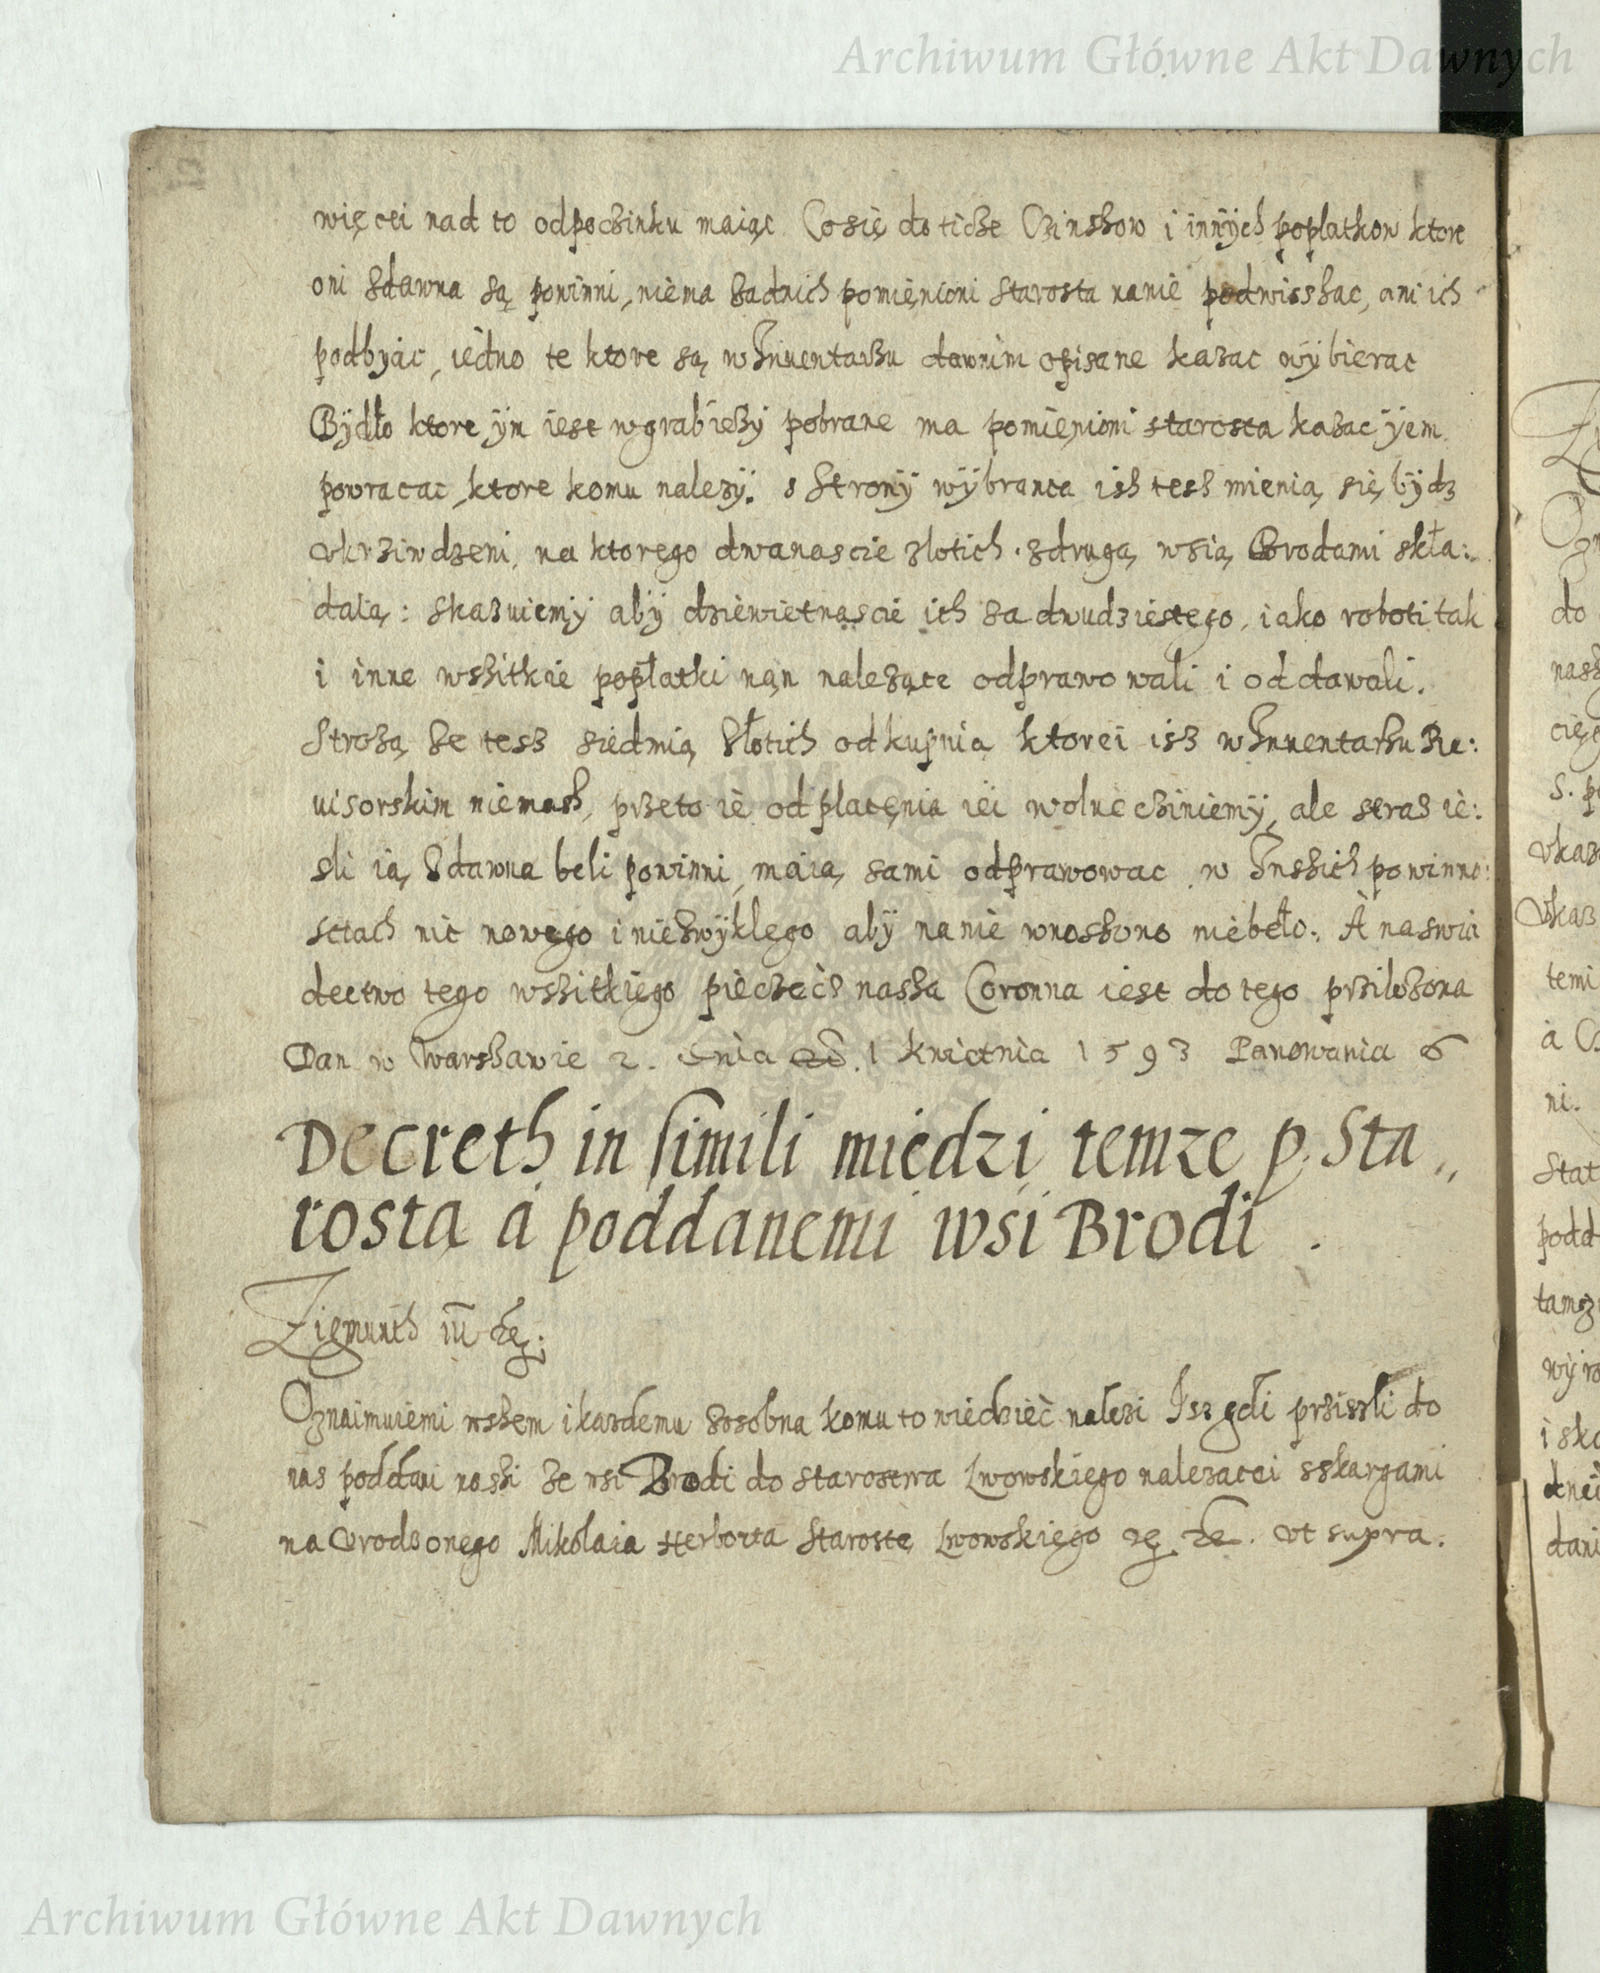 Archiwum Główne Akt Dawnych
więcei nad to odpoczinku maiąc Co się do ticze Czinszow i innÿch popłatkow ktore
oni zdawna są powinni, niema zadnich pomięnioni Starosta nanie podwisszac, ani ich
podbyiac, iedno te ktore są w Inuentarzu dawnim opisane kazac wÿbierac
Bÿdło ktore ÿm iest w grabieżÿ pobrane ma pomięnioni starosta kazac ÿem
powracac, ktore komu nalezÿ. s Stronÿ wÿbranca isz tesz mienią się bÿdz
Vkrziwdzeni, na ktorego dwanascie złotich z drugą wsią Brodami skła:
daią: skazuiemÿ abÿ dziewietnascie ich za dwudziestego, iako roboti tak
i inne wszitkie popłatki nąn nalezące odprawowali i oddawali.
Strozą ze tesz siedmią złotich odkupuią ktorei isz w Inuentarzu Re:
uisorskim niemasz, przeto ie od płacenia iei wolne cziniemÿ, ale straz ie:
sli ią zdawna beli powinni, maią sami odprawowac, w Inszich powinno:
sciach nic nowego i niezwÿkłego abÿ na nie wnoszono niebeło. A na swia
dectwo tego wszitkiego pięczęcz nasza Coronna iest do tego prziłozona
Dan w Warszawie 2. dnia 1 kwietnia 1593 Panowania 6
Decreth in simili miedzi temze p. Sta„
rostą a poddanemi wsi Brodi.
Zigmunth III etc:
Oznaimuiemi wszem i kazdemu zosobna komu to wiedziec nalezi Isz gdi prziszli do
nas poddani naszi ze wsi Brodi do starostwa Lwowskiego nalezacei sskargami
na Vrodzonego Mikołaia Herborta Starostę Lwowskiego etc. etc. Vt supra.
Archiwum Główne Akt Dawnych